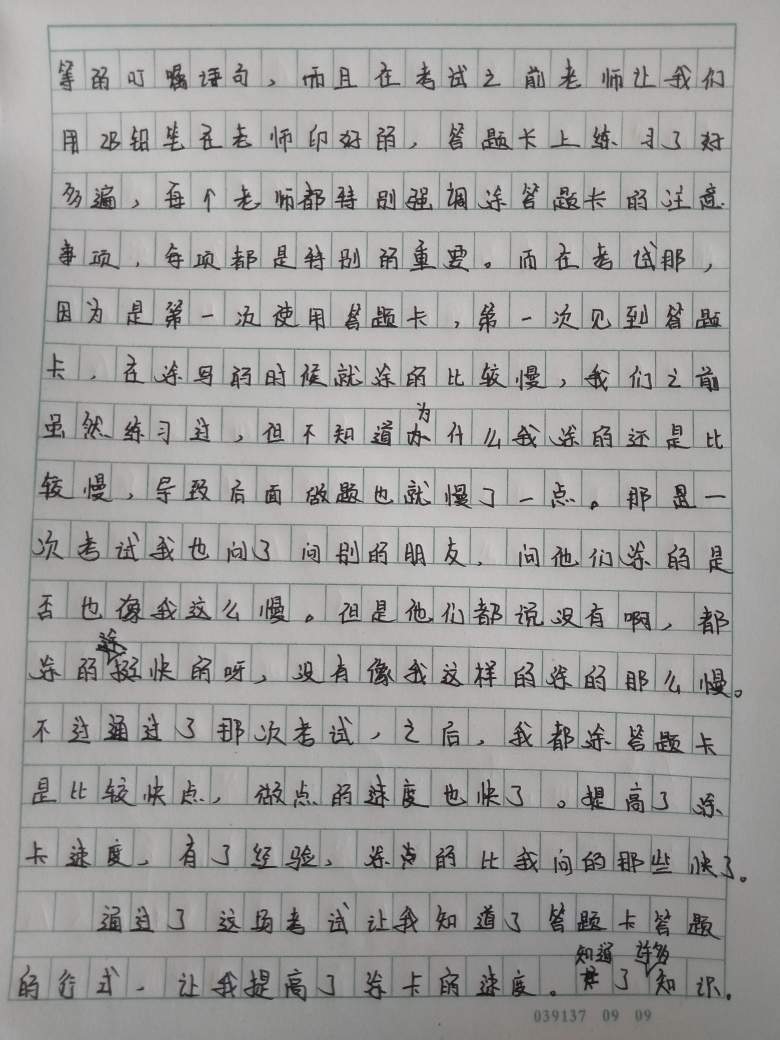 等的叮嘱语句，而且在考试之前老师让我们
用2B铅笔在老师印好的，答题卡上练习了好
多遍，每个老师都特别强调涂答题卡的注意
事项，每项都是特别的重要。而在考试那，
因为是第一次使用答题卡，第一次见到答题
卡，在涂写的时候就涂的比较慢，我们之前
虽然练习过，但不知道为什么我涂的还是比
较慢，导致后面做题也就慢了一点。那是一
次考试我也问了问别的朋友，问他们涂的是
否也像我这么慢。但是他们都说没有啊，都
涂的挺快的呀，没有像我这样的涂的那么慢。
不过通过了那次考试，之后，我都涂答题卡
是比较快点，做点的速度也快了。提高了涂
卡速度，有了经验，涂点的比我问的那些快了。
通过了这场考试让我知道了答题卡答题
的行式，让我提高了涂卡的速度。知道了许多知识。
039137 09 09